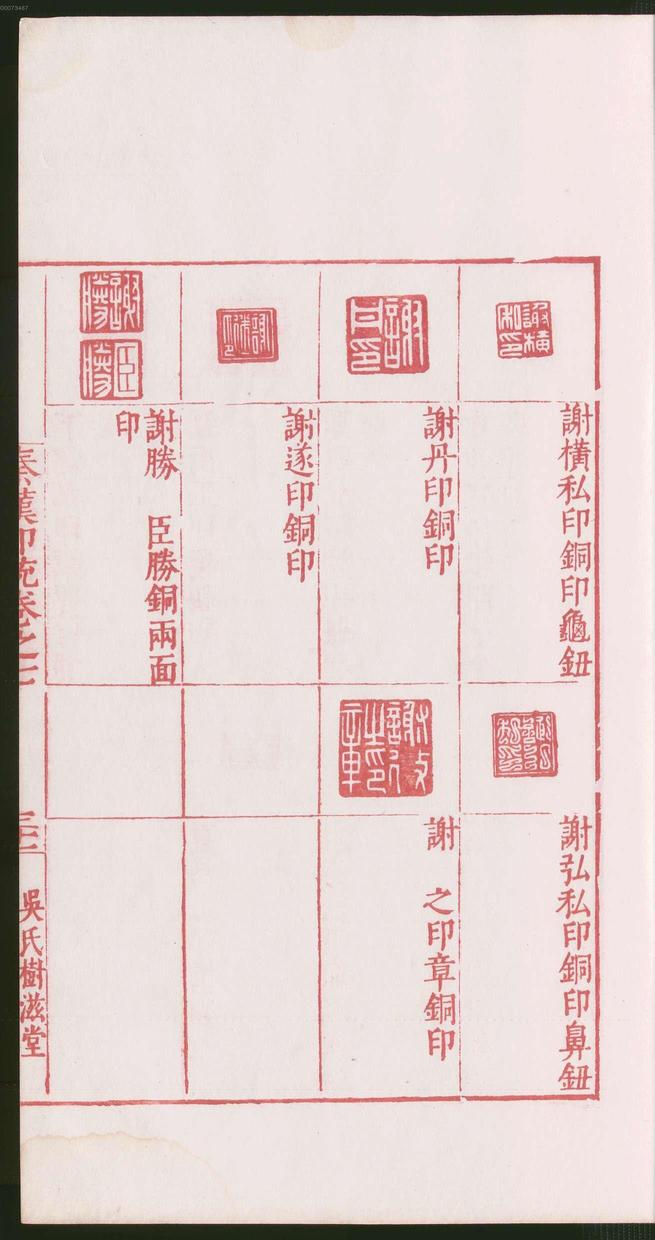 00073467
謝橫私印銅印龜鈕
謝丹印銅印
謝遂印銅印
謝勝　臣勝銅兩面
印
謝弘私印銅印鼻鈕
謝　之印章銅印
秦漢印範卷之二
吳氏樹滋堂